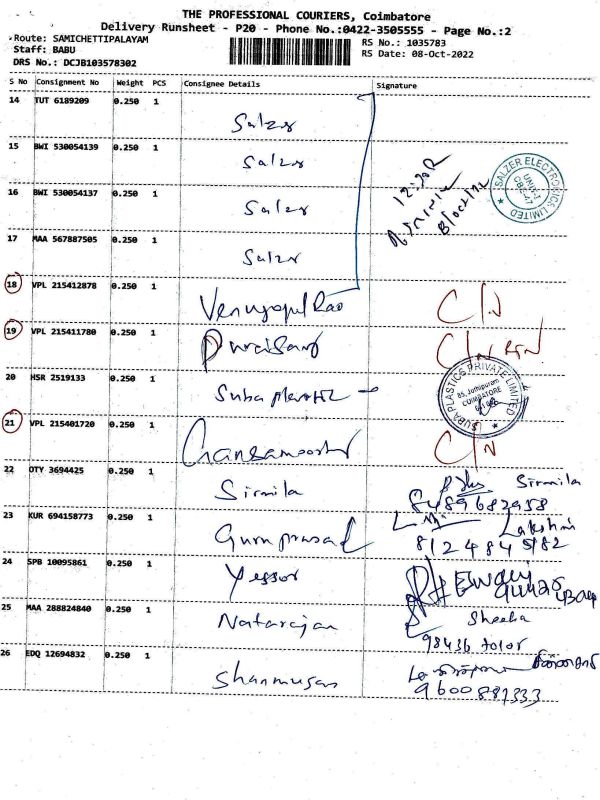 THE PROFESSIONAL COURIERS, Coimbatore
Delivery Runsheet - P20 - Phone No.:0422-3505555 - Page No.:2
Route: SAMICHETTIPALAYAM
Staff: BABU
DRS No.: DCJB103578302
RS No.: 1035783
RS Date: 08-Oct-2022
S No Consignment No Weight PCS Consignee Details Signature
14 TUT 6189209 0.250 1 Salzer
15 BWI 530054139 0.250 1 Salzer
16 BWI 530054137 0.250 1 Salzer
17 MAA 567887505 0.250 1 Salzer
12:30
SALZER ELECTRONICS LIMITED
UNIT-I
CBE-47
18 VPL 215412878 0.250 1 Venugopal Rao C/N
19 VPL 215411780 0.250 1 Duraisamy C/N
20 HSR 2519133 0.250 1 Suba plastic
SUBA PLASTICS PRIVATE LIMITED
85, Jothipuram
COIMBATORE
21 VPL 215401720 0.250 1 C/N
22 OTY 3694425 0.250 1 Sirmila Sirmila
8489682958
23 KUR 694158773 0.250 1 Guruprasad Lakshmi
8124845182
24 SPB 10095861 0.250 1 Yessor
25 MAA 288824840 0.250 1 Natarajan Sheeba
98436
26 EDQ 12694832 0.250 1 Shanmugan
9600881333